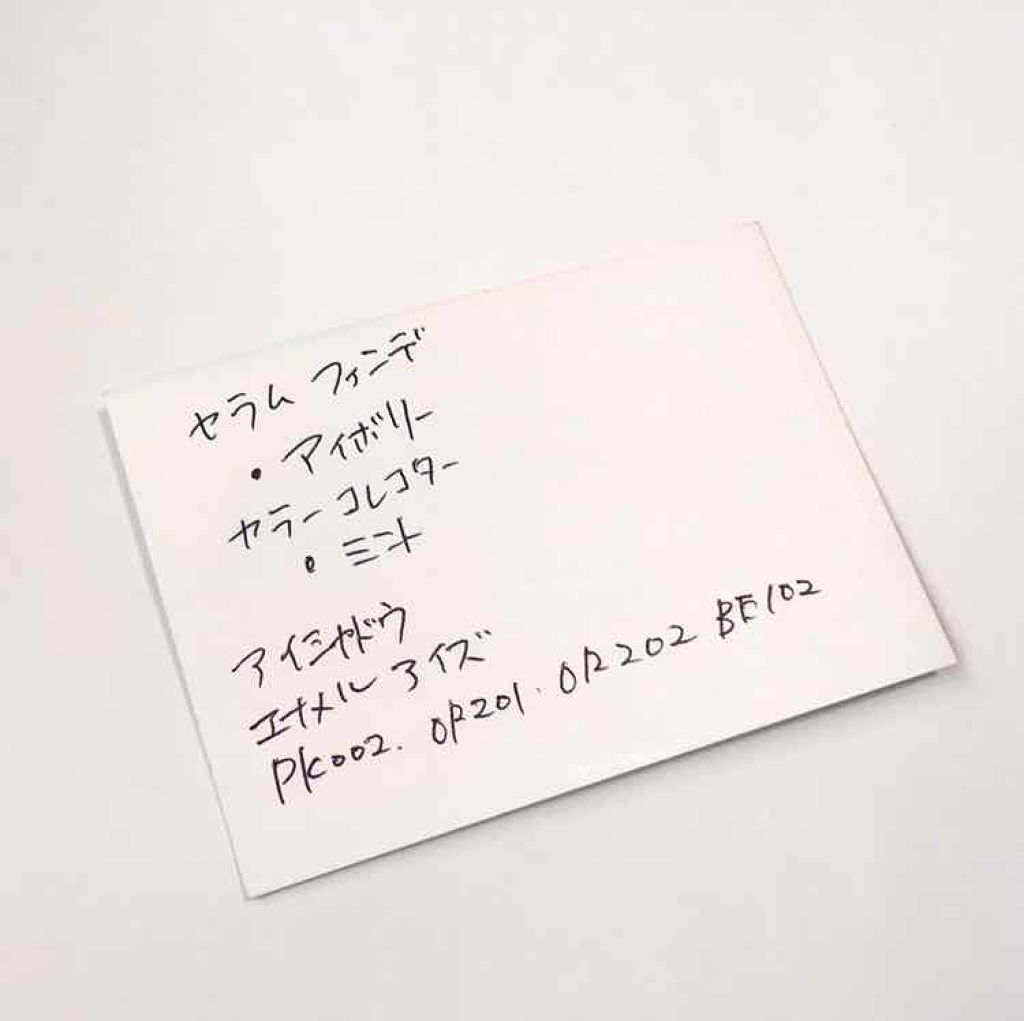 セラム ファンデ
・アイボリー
カラーコレクター
・ミント
アイシャドウ
エナメルアイズ
PK002. OR201. OR202 BE102